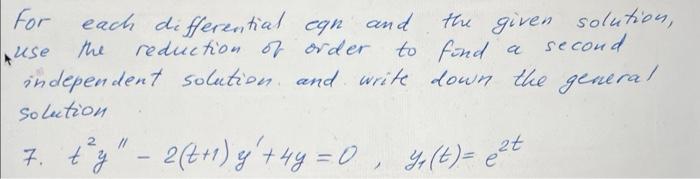 For each differential eqn and the given solution,
use the reduction of order to fond a second
independent solution. and write down the general
solution
7. t²y" - 2(t+1)y' + 4y = 0 , y₁(t) = e²ᵗ